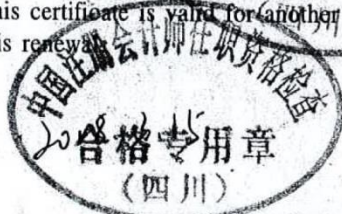 his certificate is valid for another
is renewal.
中国注册会计师任职资格检查
合格专用章
(四川)